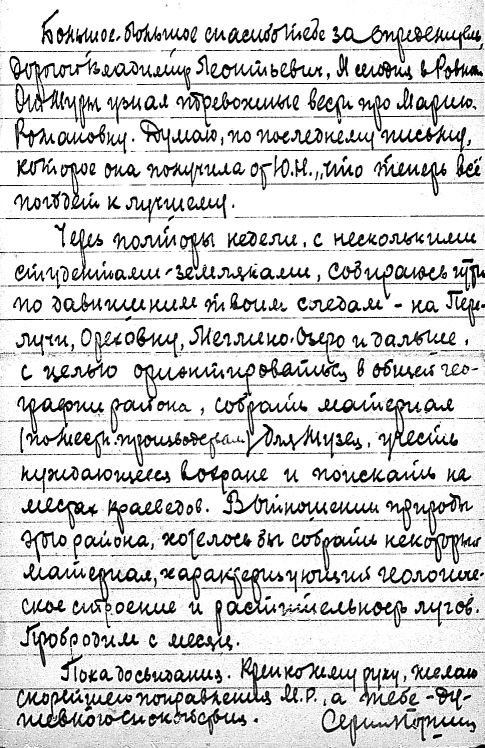 Большое-большое спасибо тебе за определитель,
дорогой Владимир Леонтьевич. Я сегодня в Ровно.
От Шуры узнал тревожные вести про Марию
Романовну. Думаю, по последнему письму,
которое она получила от Ю.Н., что теперь всё
пойдет к лучшему.
Через полторы недели, с несколькими
студентами-земляками, собираюсь идти
по давишним твоим следам - на Пере-
лучи, Ореховку, Меглино-Озеро и дальше,
с целью ориентироваться в общей гео-
графии района, собрать материал
(по местн. производствам) для музея, учесть
нуждающееся в охране и поискать на
местах краеведов. В отношении природы
этого района, хотелось бы собрать некоторый
материал, характеризующий геологиче-
ское строение и растительность лугов.
Пробродим с месяц.
Пока досвидания. Крепко жму руку, желаю
скорейшего поправления М.Р., а тебе - ду-
шевного спокойствия.